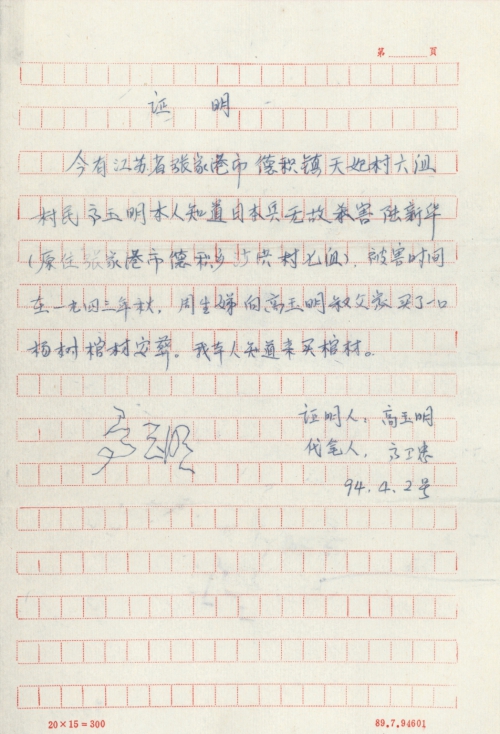 第 頁
证 明
今有江苏省张家港市德积镇天妃村六组
村民高玉明本人知道日本兵无故杀害陆新华
(原住张家港市德积乡 村七组)，被害时间
在一九四三年秋，周生娣向高玉明叔父家买了一口
杨树棺材安葬。我本人知道来买棺材。
证明人：高玉明
高玉明
代笔人，高卫忠
94.4.2号
20×15=300
89.7.94601